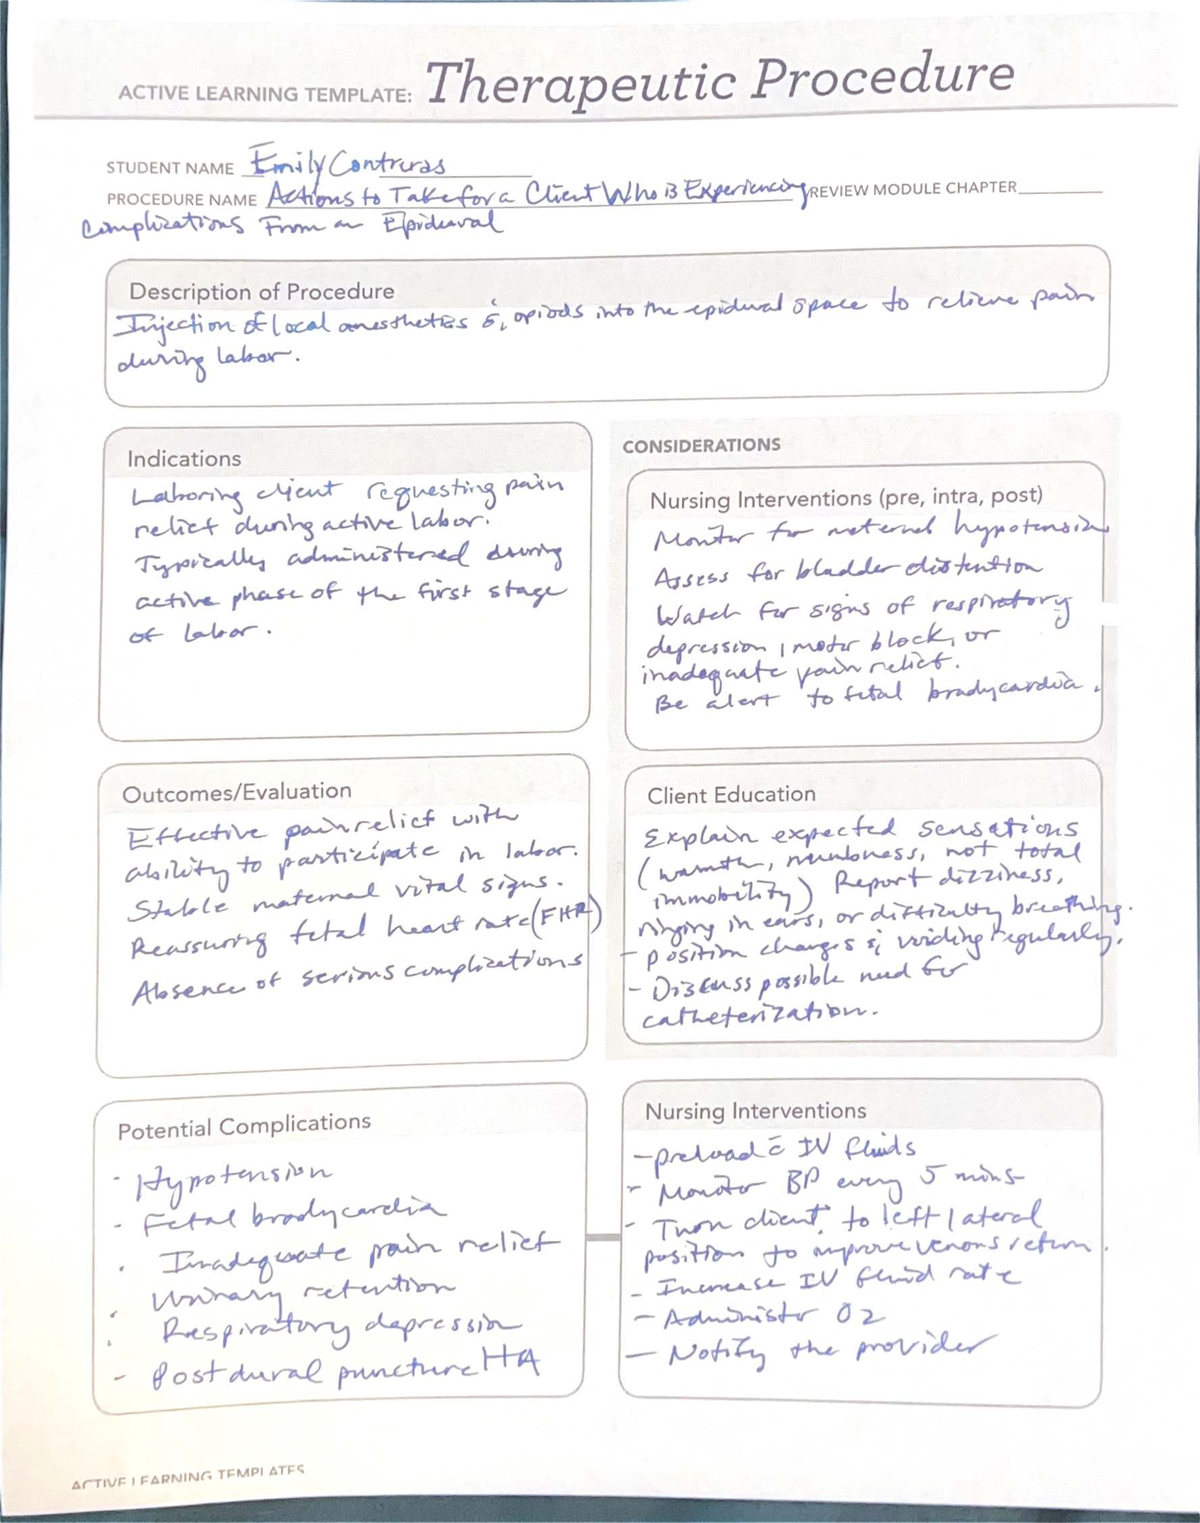 ACTIVE LEARNING TEMPLATE: Therapeutic Procedure
STUDENT NAME Emily Contreras
PROCEDURE NAME Actions to Take for a Client Who is Experiencing REVIEW MODULE CHAPTER
Complications From an Epidural
Description of Procedure
Injection of local anesthetics & opiods into the epidural space to relieve pain
during labor.
Indications
Laboring client requesting pain
relief during active labor.
Typically administered during
active phase of the first stage
of labor.
CONSIDERATIONS
Nursing Interventions (pre, intra, post)
Monitor for maternal hypotension
Assess for bladder distention
Watch for signs of respiratory
depression, motor block, or
inadequate pain relief.
Be alert to fetal bradycardia.
Outcomes/Evaluation
Effective pain relief with
ability to participate in labor.
Stable maternal vital signs.
Reassuring fetal heart rate (FHR)
Absence of serious complications
Client Education
Explain expected sensations
(warmth, numbness, not total
immobility) Report dizziness,
ringing in ears, or difficulty breathing.
- position changes & voiding regularly.
- Discuss possible need for
catheterization.
Potential Complications
- Hypotension
- Fetal bradycardia
. Inadequate pain relief
. Urinary retention
. Respiratory depression
- Post dural puncture HA
Nursing Interventions
- preload c̄ IV fluids
- Monitor BP every 5 mins
- Turn client to left lateral
position to improve venous return.
- Increase IV fluid rate
- Administer O2
- Notify the provider
ACTIVE LEARNING TEMPLATES